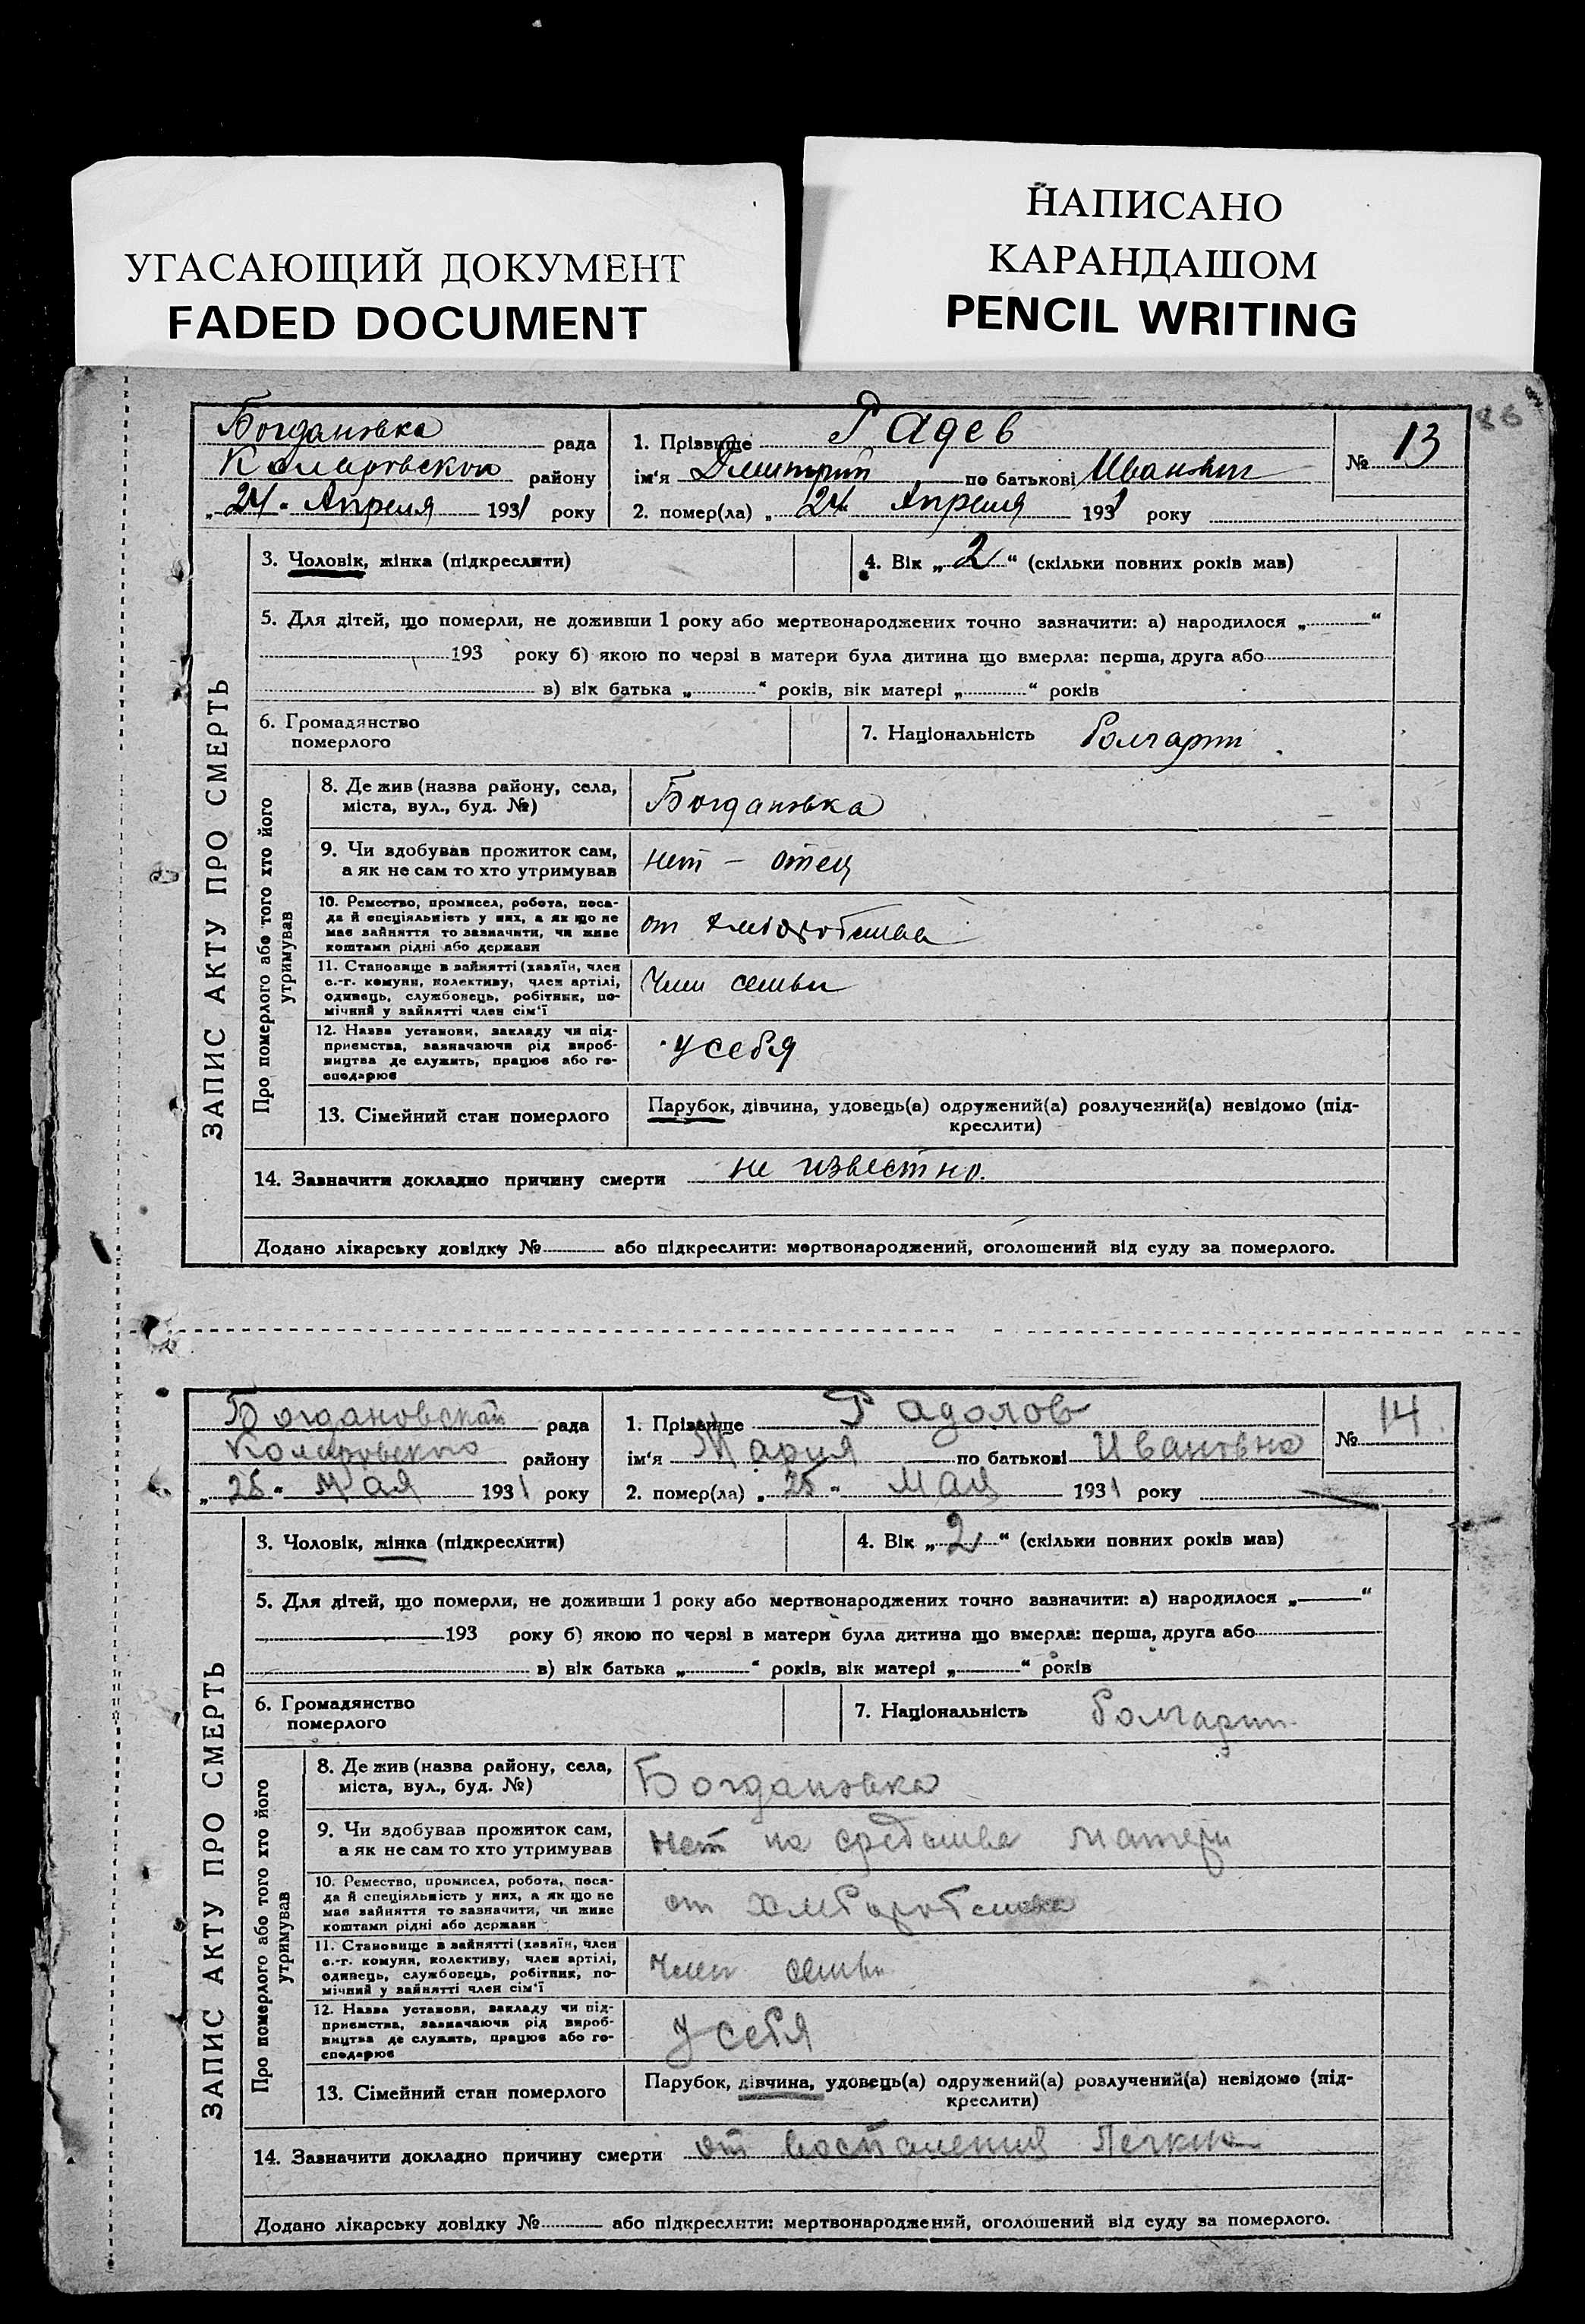 УГАСАЮЩИЙ ДОКУМЕНТ
FADED DOCUMENT
НАПИСАНО
КАРАНДАШОМ
PENCIL WRITING
86
Богдановка рада
району
„24" Апреля 1931 року
1. Прізвище Радев
ім'я Дмитрий по батькові Иванович
2. помер(ла) „24" Апреля 1931 року
№ 13
ЗАПИС АКТУ ПРО СМЕРТЬ
3. Чоловік, жінка (підкреслити)
4. Вік „2" (скільки повних років мав)
5. Для дітей, що померли, не доживши 1 року або мертвонароджених точно зазначити: а) народилося „ "
193 року б) якою по черзі в матери була дитина що вмерла: перша, друга або
в) вік батька „ " років, вік матері „ " років
6. Громадянство
померлого
7. Національність Болгарин
Про померлого або того хто його
утримував
8. Де жив (назва району, села,
міста, вул., буд. №)
Богдановка
9. Чи здобував прожиток сам,
а як не сам то хто утримував
нет – отец
10. Ремество, промисел, робота, поса-
да й спеціяльність у них, а як що не
має зайняття то зазначити, чи живе
коштами рідні або держави
от
11. Становище в зайнятті (хазяїн, член
с.-г. комуни, колективу, член артілі,
одинець, службовець, робітник, по-
мічний у зайнятті член сім'ї
Член семьи
12. Назва установи, закладу чи під-
приємства, зазначаючи рід вироб-
ництва де служить, працює або го-
сподарює
у себя
13. Сімейний стан померлого
Парубок, дівчина, удовець(а) одружений(а) розлучений(а) невідомо (під-
креслити)
14. Зазначити докладно причину смерти не известно.
Додано лікарську довідку № або підкреслити: мертвонароджений, оголошений від суду за померлого.
Богдановской рада
району
„25" мая 1931 року
1. Прізвище Радолов
ім'я Мария по батькові Ивановна
2. помер(ла) „25" Мая 1931 року
№ 14
ЗАПИС АКТУ ПРО СМЕРТЬ
3. Чоловік, жінка (підкреслити)
4. Вік „2" (скільки повних років мав)
5. Для дітей, що померли, не доживши 1 року або мертвонароджених точно зазначити: а) народилося „ "
193 року б) якою по черзі в матери була дитина що вмерла: перша, друга або
в) вік батька „ " років, вік матері „ " років
6. Громадянство
померлого
7. Національність Болгарин
Про померлого або того хто його
утримував
8. Де жив (назва району, села,
міста, вул., буд. №)
Богдановка
9. Чи здобував прожиток сам,
а як не сам то хто утримував
нет на средства матери
10. Ремество, промисел, робота, поса-
да й спеціяльність у них, а як що не
має зайняття то зазначити, чи живе
коштами рідні або держави
от
11. Становище в зайнятті (хазяїн, член
с.-г. комуни, колективу, член артілі,
одинець, службовець, робітник, по-
мічний у зайнятті член сім'ї
Член семьи
12. Назва установи, закладу чи під-
приємства, зазначаючи рід вироб-
ництва де служить, працює або го-
сподарює
у себя
13. Сімейний стан померлого
Парубок, дівчина, удовець(а) одружений(а) розлучений(а) невідомо (під-
креслити)
14. Зазначити докладно причину смерти от воспаления
Додано лікарську довідку № або підкреслити: мертвонароджений, оголошений від суду за померлого.